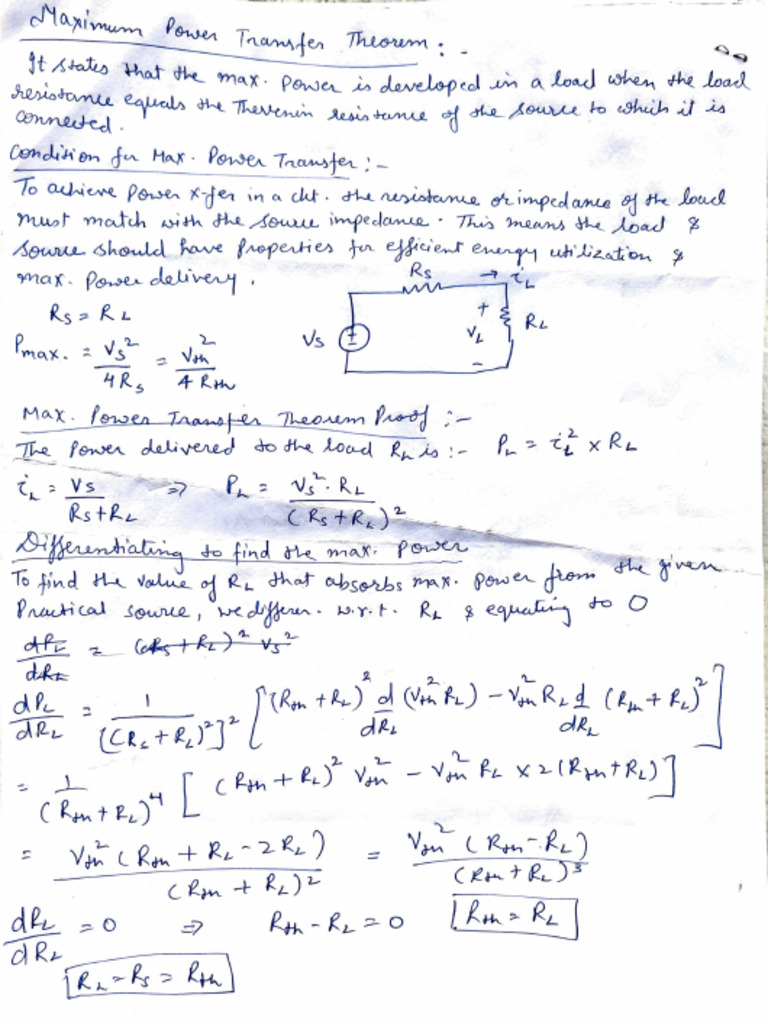 Maximum Power Transfer Theorem : -
It states that the max. power is developed in a load when the load
resistance equals the Thevenin resistance of the source to which it is
connected.
Condition for Max. Power Transfer :-
To achieve power x-fer in a ckt. the resistance or impedance of the load
must match with the source impedance. This means the load &
source should have properties for efficient energy utilization &
max. power delivery.
Rs = RL
Pmax. = Vs² / 4Rs = Vth² / 4 Rth
Rs → iL
Vs + VL - RL
Max. Power Transfer Theorem Proof :-
The power delivered to the load RL is :- PL = iL² × RL
iL = Vs / Rs+RL ⇒ PL = Vs². RL / (Rs+RL)²
Differentiating to find the max. power
To find the value of RL that absorbs max. power from the given
Practical source, we differen. w.r.t. RL & equating to 0
dPL/dRL = (Rs + RL)² Vs²
dPL/dRL = 1 / [(Rs + RL)²]² [(Rth + RL)² d/dRL (Vth² RL) - Vth² RL d/dRL (Rth + RL)²]
= 1 / (Rth + RL)⁴ [ (Rth + RL)² Vth² - Vth² RL × 2 (Rth + RL)]
= Vth² (Rth + RL - 2RL) / (Rth + RL)² = Vth² (Rth - RL) / (Rth + RL)³
dRL/dRL = 0 ⇒ Rth - RL = 0 Rth = RL
RL = Rs = Rth